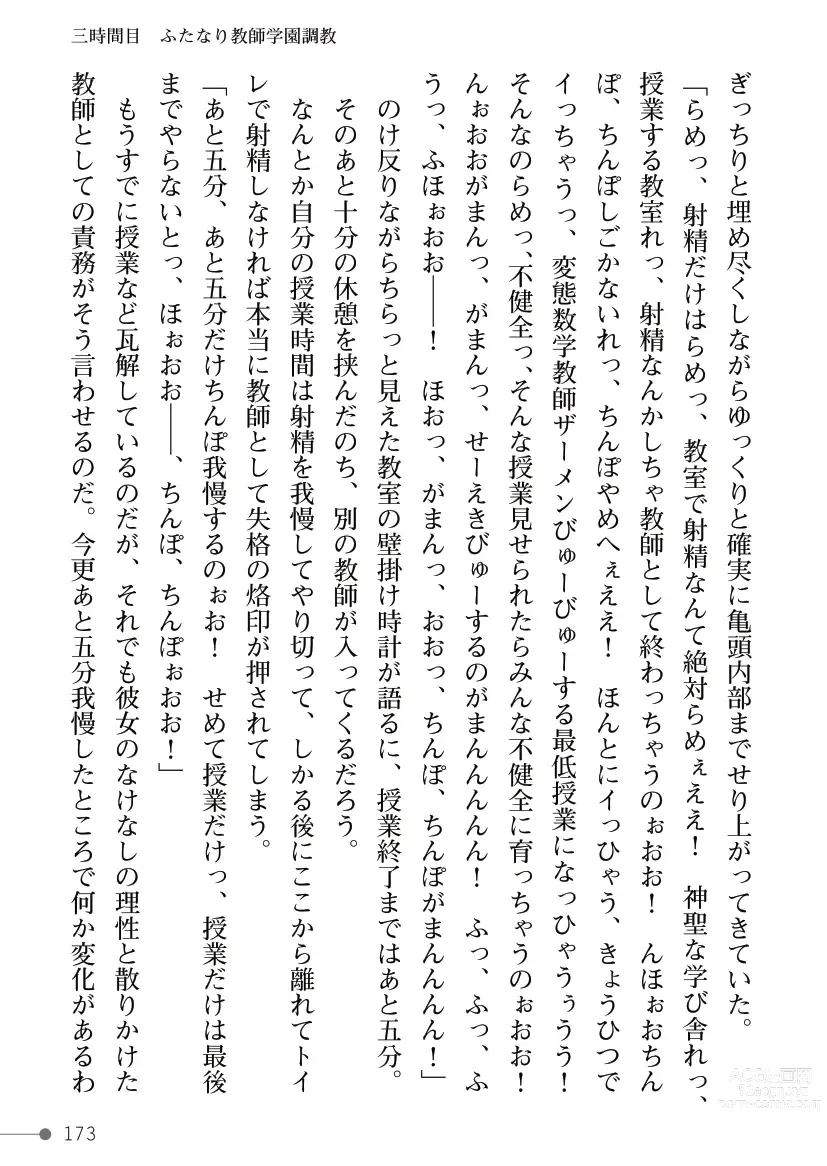 三時間目　ふたなり教師学園調教
ぎっちりと埋め尽くしながらゆっくりと確実に亀頭内部までせり上がってきていた。
「らめっ、射精だけはらめっ、教室で射精なんて絶対らめぇええ！　神聖な学び舎れっ、
授業する教室れっ、射精なんかしちゃ教師として終わっちゃうのぉおお！　んほぉおちん
ぽ、ちんぽしごかないれっ、ちんぽやめへぇええ！　ほんとにイっひゃう、きょうひつで
イっちゃうっ、変態数学教師ザーメンびゅーびゅーする最低授業になっひゃうぅうう！
そんなのらめっ、不健全っ、そんな授業見せられたらみんな不健全に育っちゃうのぉおお！
んぉおおがまんっ、がまんっ、せーえきびゅーするのがまんんんんん！　ふっ、ふっ、ふ
うっ、ふほぉおお――！　ほおっ、がまんっ、おおっ、ちんぽ、ちんぽがまんんんん！」
のけ反りながらちらっと見えた教室の壁掛け時計が語るに、授業終了まではあと五分。
そのあと十分の休憩を挟んだのち、別の教師が入ってくるだろう。
なんとか自分の授業時間は射精を我慢してやり切って、しかる後にここから離れてトイ
レで射精しなければ本当に教師として失格の烙印が押されてしまう。
「あと五分、あと五分だけちんぽ我慢するのぉお！　せめて授業だけっ、授業だけは最後
までやらないとっ、ほぉおお――、ちんぽ、ちんぽぉおお！」
もうすでに授業など瓦解しているのだが、それでも彼女のなけなしの理性と散りかけた
教師としての責務がそう言わせるのだ。今更あと五分我慢したところで何か変化があるわ
173